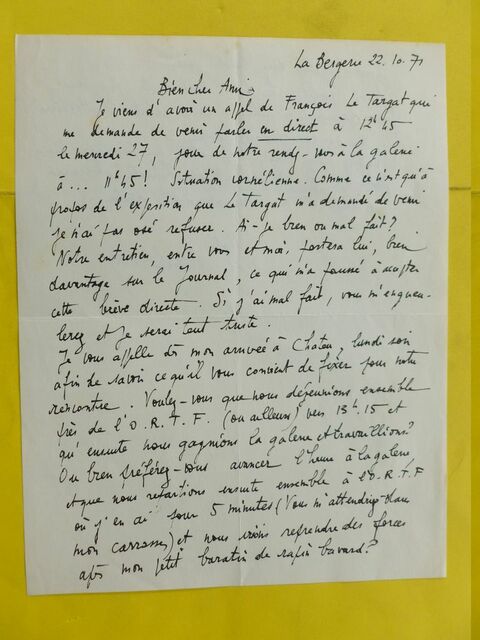 La Bergerie 22.10.71
Bien cher Ami,
Je viens d'avoir un appel de François Le Targat qui
me demande de venir parler en direct à 12h45
le mercredi 27, jour de notre rendez-vous à la galerie
à... 11h45! Situation cornélienne. Comme ce n'est qu'à
propos de l'exposition que Le Targat m'a demandé de venir
je n'ai pas osé refuser. Ai-je bien ou mal fait?
Notre entretien, entre vous et moi, portera lui, bien
davantage sur le Journal, ce qui m'a poussé à accepter
cette brève directe. Si j'ai mal fait, vous m'engueu-
lerez et je serai tout triste.
Je vous appelle dès mon arrivée à Chatou, lundi soir
afin de savoir ce qu'il vous convient de fixer pour notre
rencontre. Voulez-vous que nous déjeunions ensemble
près de l'O.R.T.F. (ou ailleurs) vers 13h.15 et
qu'ensuite nous gagnions la galerie et travaillions?
Ou bien préférez-vous avancer l'heure à la galerie
et que nous repartions ensuite ensemble à l'O.R.T.F
où j'en ai pour 5 minutes (Vous m'attendriez dans
mon carrosse) et nous irions reprendre des forces
après mon petit baratin de rapin bavard?